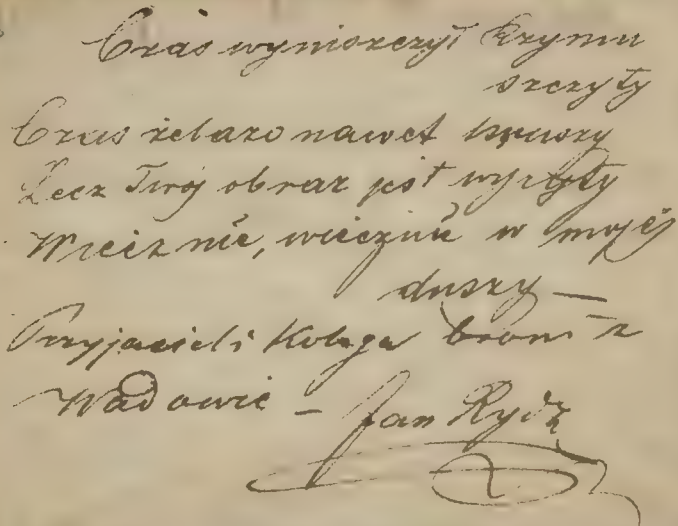 Czas wyniszczył Krzymu
szczyty
Czas żelazo nawet kruszy
Lecz Twój obraz jest wyryty
Wiecznie, wiecznie w mojej
duszy —
Przyjaciel i Kolega broni z
Wadowic — Jan Rydz